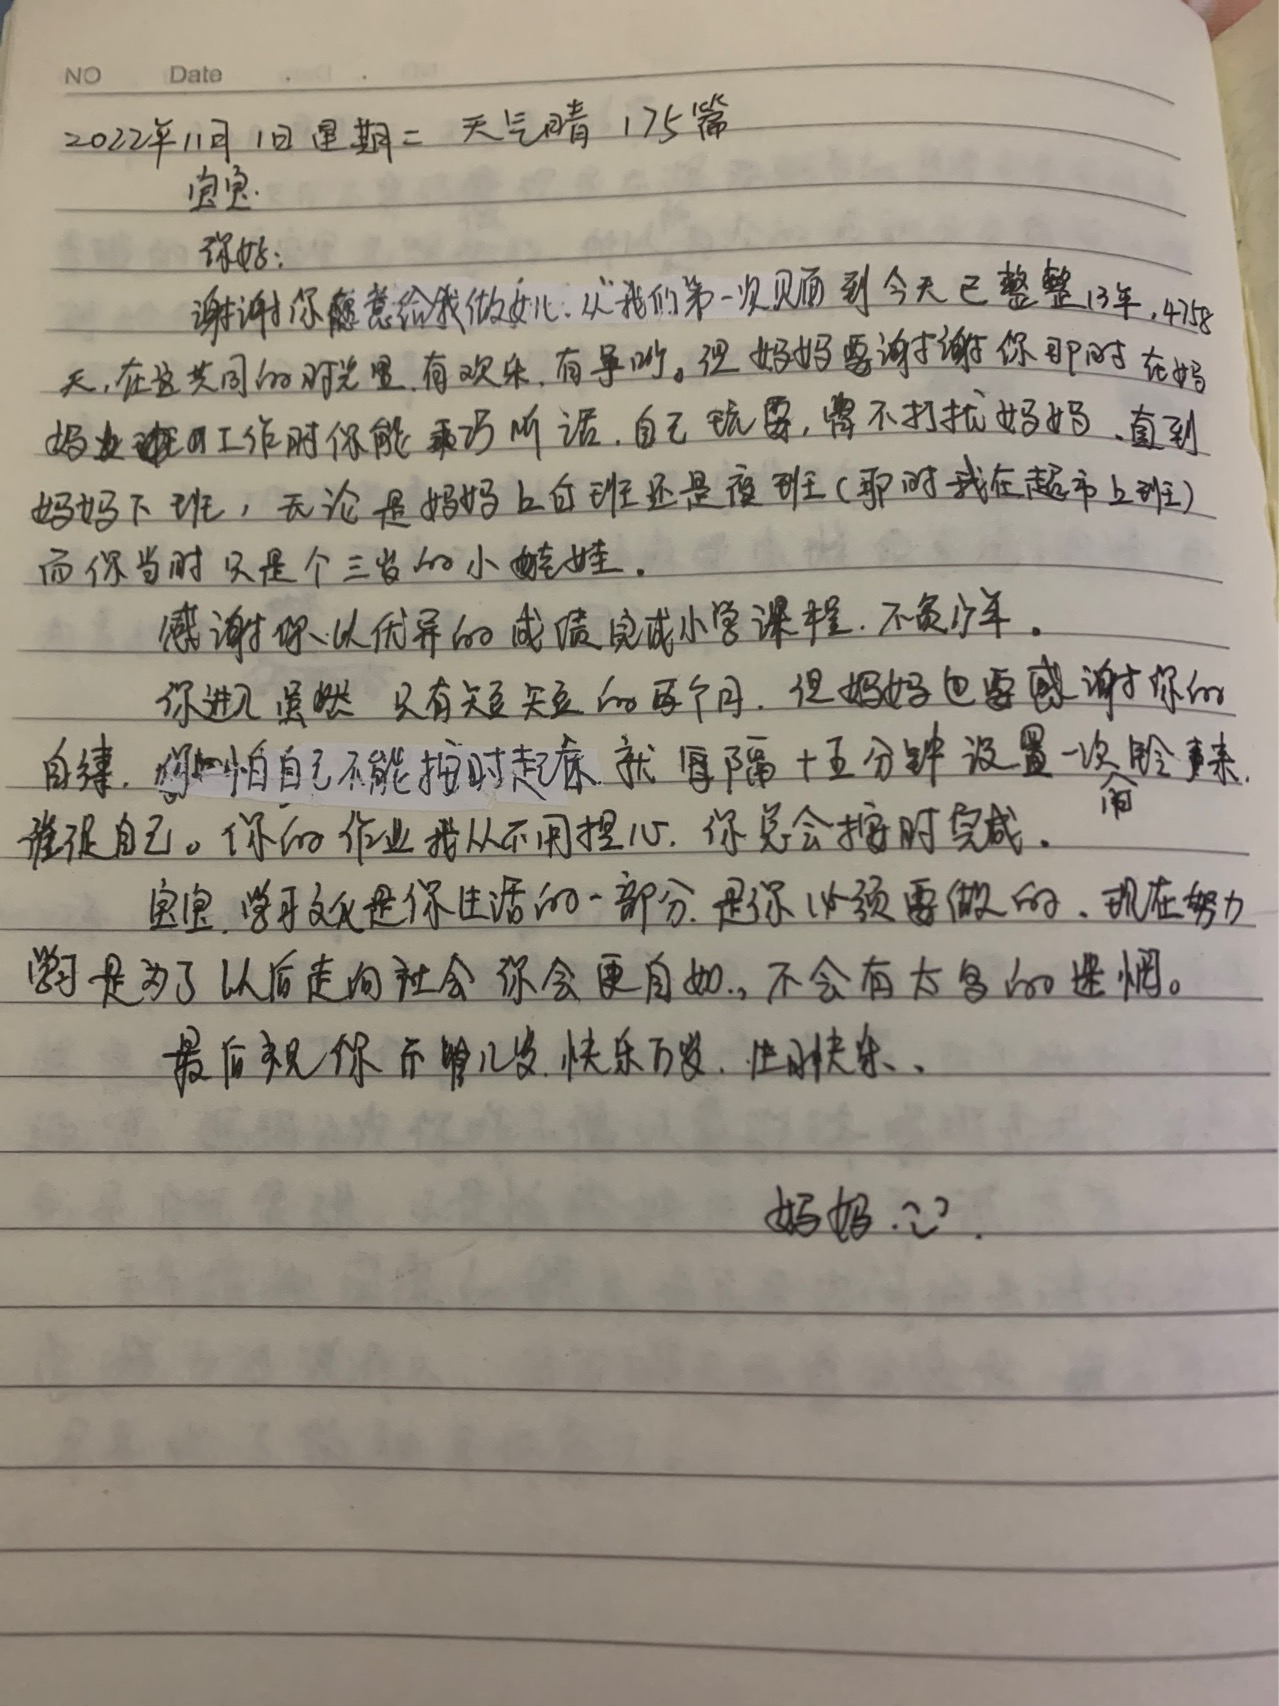 NO Date
2022年11月1日星期二 天气晴 175篇
宝宝.
你好:
谢谢你愿意给我做女儿.从我们第一次见面到今天已整整13年,4758
天,在这共同的时光里,有欢乐,有争吵。但妈妈要谢谢你那时在妈
妈工作时你能乖巧听话.自己玩耍,不打扰妈妈、直到
妈妈下班,无论是妈妈上白班还是夜班(那时我在超市上班)
而你当时只是个三岁的小娃娃.
感谢你、以优异的成绩完成小学课程.不负少年.
你进入虽然只有短短的两个月.但妈妈也要感谢你的
自律.你怕自己不能按时起床.就每隔十五分钟设置一次闹铃来
催促自己。你的作业我从不用担心.你总会按时完成.
宝宝.学习文化是你生活的一部分.是你必须要做的、现在努力
学习是为了以后走向社会你会更自如.,不会有太多的迷惘。
最后祝你万岁.快乐万岁.生日快乐、
妈妈.